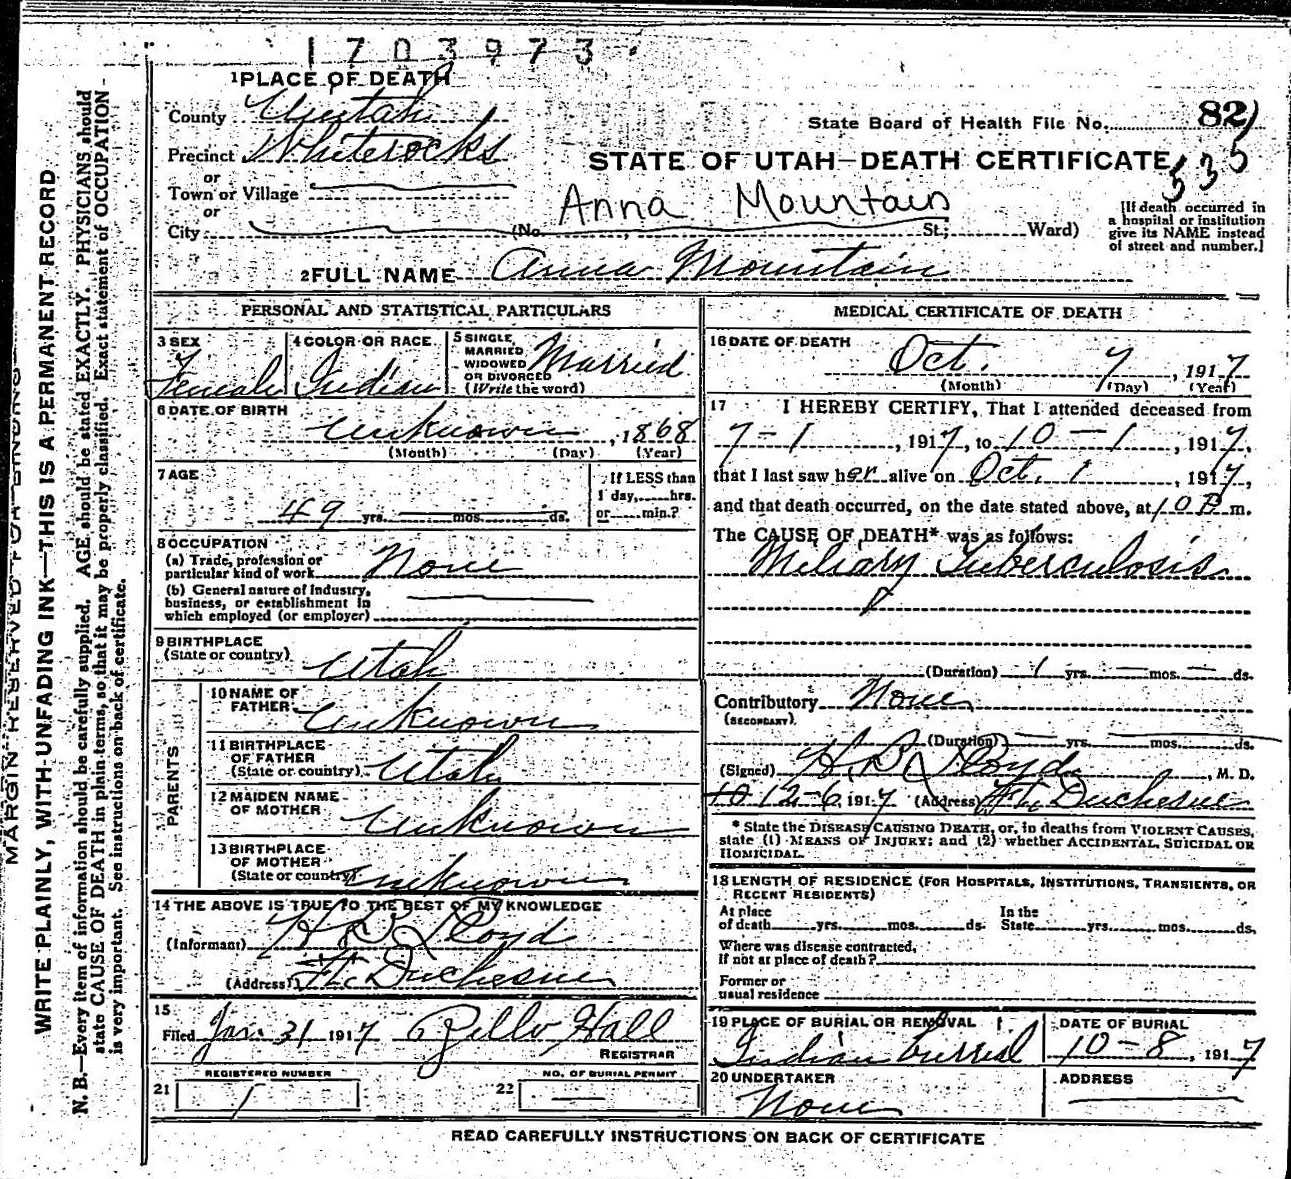 1703973
1 PLACE OF DEATH
County Uintah
State Board of Health File No. 82
Precinct Whiterocks
STATE OF UTAH—DEATH CERTIFICATE
535
or
Town or Village
or
Anna Mountain
City (No. St.; Ward)
[If death occurred in
a hospital or institution
give its NAME instead
of street and number.]
2 FULL NAME Anna Mountain
PERSONAL AND STATISTICAL PARTICULARS
3 SEX
Female
4 COLOR OR RACE
Indian
5 SINGLE,
MARRIED,
WIDOWED
OR DIVORCED
(Write the word)
Married
6 DATE OF BIRTH
Unknown, 1868
(Month) (Day) (Year)
7 AGE
49 yrs. mos. ds.
If LESS than
1 day, hrs.
or min.?
8 OCCUPATION
(a) Trade, profession or
particular kind of work None
(b) General nature of industry,
business, or establishment in
which employed (or employer)
9 BIRTHPLACE
(State or country) Utah
PARENTS
10 NAME OF
FATHER Unknown
11 BIRTHPLACE
OF FATHER
(State or country) Utah
12 MAIDEN NAME
OF MOTHER Unknown
13 BIRTHPLACE
OF MOTHER
(State or country) Unknown
14 THE ABOVE IS TRUE TO THE BEST OF MY KNOWLEDGE
(Informant) H B Lloyd
(Address) Ft. Duchesne
15
Filed Jan. 31 1917 Zella Hall
REGISTRAR
REGISTERED NUMBER
21 1
NO. OF BURIAL PERMIT
22 —
MEDICAL CERTIFICATE OF DEATH
16 DATE OF DEATH
Oct. 7, 1917
(Month) (Day) (Year)
17 I HEREBY CERTIFY, That I attended deceased from
7-1, 1917, to 10-1, 1917,
that I last saw her alive on Oct. 1, 1917,
and that death occurred, on the date stated above, at 10 P m.
The CAUSE OF DEATH* was as follows:
Miliary Tuberculosis
(Duration) 1 yrs. — mos. — ds.
Contributory None
(SECONDARY)
(Duration) — yrs. — mos. ds.
(Signed) H. B Lloyd, M. D.
10 12-6 1917 (Address) Ft. Duchesne
* State the DISEASE CAUSING DEATH, or, in deaths from VIOLENT CAUSES,
state (1) MEANS OF INJURY; and (2) whether ACCIDENTAL, SUICIDAL OR
HOMICIDAL.
18 LENGTH OF RESIDENCE (FOR HOSPITALS, INSTITUTIONS, TRANSIENTS, OR
RECENT RESIDENTS)
At place
of death yrs. mos. ds.
In the
State yrs. mos. ds.
Where was disease contracted,
if not at place of death?
Former or
usual residence
19 PLACE OF BURIAL OR REMOVAL
Indian burial
DATE OF BURIAL
10-8, 1917
20 UNDERTAKER
None
ADDRESS
READ CAREFULLY INSTRUCTIONS ON BACK OF CERTIFICATE
MARGIN RESERVED FOR BINDING
WRITE PLAINLY, WITH UNFADING INK—THIS IS A PERMANENT RECORD
N. B.—Every item of information should be carefully supplied. AGE should be stated EXACTLY. PHYSICIANS should
state CAUSE OF DEATH in plain terms, so that it may be properly classified. Exact statement of OCCUPATION
is very important. See instructions on back of certificate.